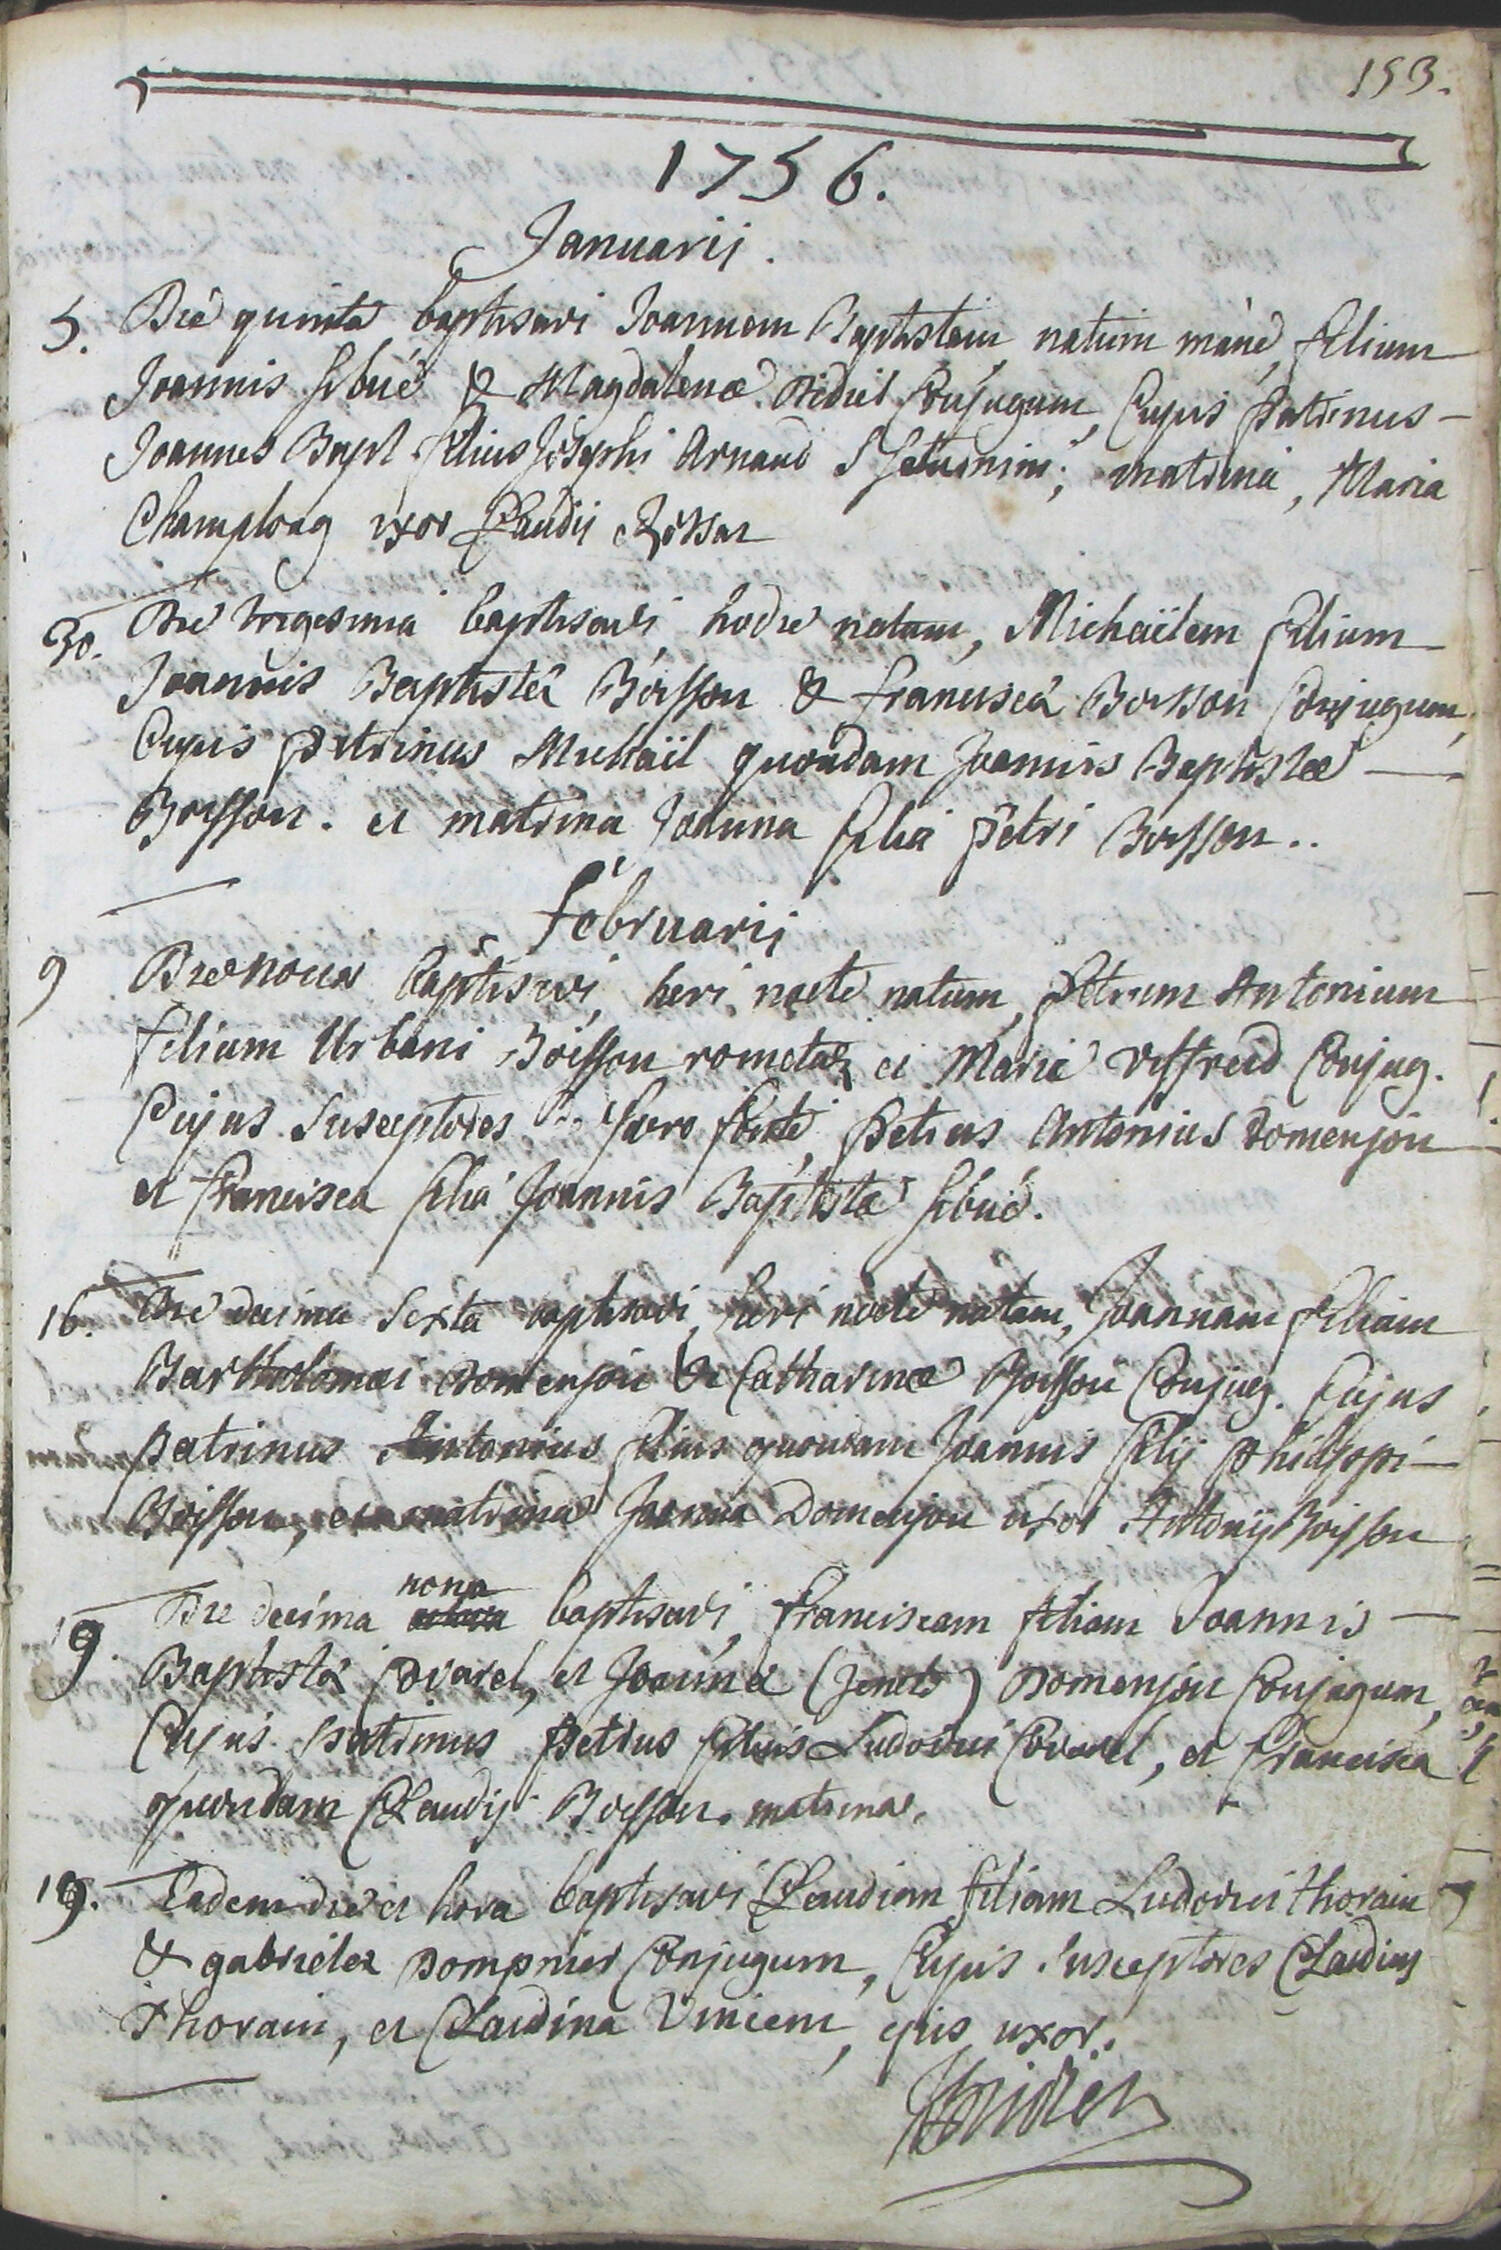 153.
1756.
Januarii.
5. Die quinta baptisavi Joannem Baptistam natum mane, filium
Joannis Sibué & Magdalenæ Didiel Conjugum, Cujus Patrinus -
Joannes Bapt filius Josephi Arnaud S Saturnini; matrina, Maria
Champlong uxor Claudii Rossat
30. Die trigesima baptisavi hodie natum, Michaëlem filium
Joannis Baptistæ Boisson & Franciscæ Boisson Conjugum,
Cujus Patrinus Michaël quondam Joannis Baptistæ -
Boisson. et matrina Joanna filia Petri Boisson..
Februarii
9 Die nona baptisavi, heri nocte natum, Petrum Antonium
filium Urbani Boisson rometaz et Mariæ Viffreid Conjug.
Cujus Susceptores Sacro fonte, Petrus Antonius Domenjon
et Francisca filia Joannis Baptistæ Sibué.
16. Die decima Sexta baptisavi, heri nocte natam, Joannam filiam
Bartholomæi Domenjon & Catharinæ Boisson Conjug. Cujus
Patrinus Antonius filius quondam Joannis filij Philippi -
Boisson, et matrina Joanna Domenjon uxor Antonij Boisson
nona
19. Die decima baptisavi Franciscam filiam Joannis -
Baptistæ Covarel, et Joannæ (Jenets) Domenjon Conjugum,
Cujus patrinus Petrus filius Ludovici Covarel, et Francisca
quondam Claudij Boisson. matrina.
19. Eadem die et hora baptisavi Claudiam filiam Ludovici Thorain
& gabrielæ Dompnier Conjugum, Cujus Susceptores Claudius
Thorain, et Claudina Vincent, ejus uxor.